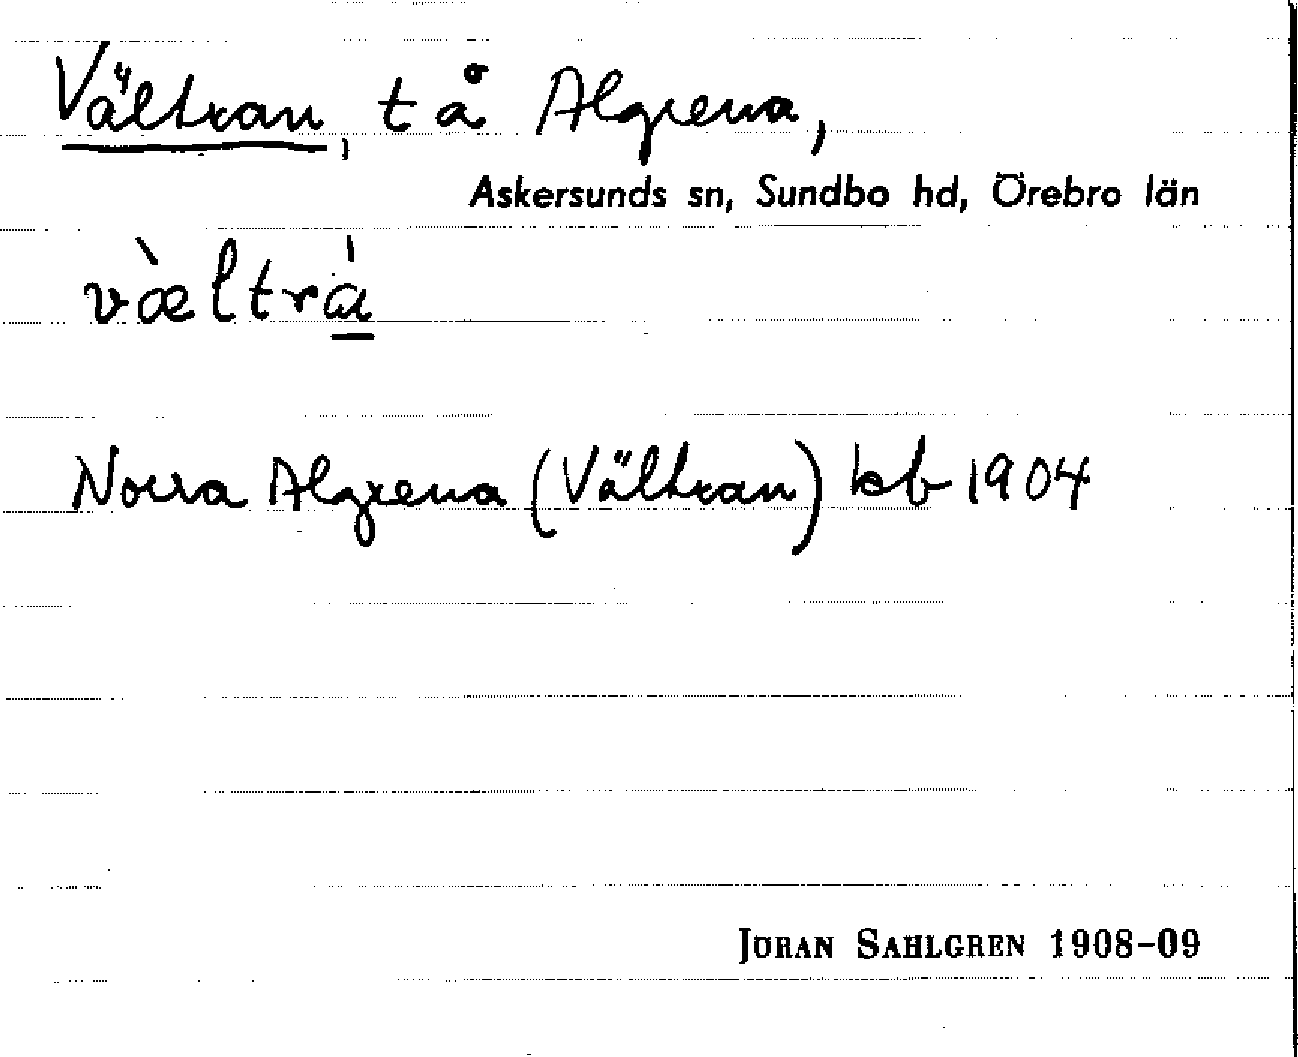 Vältran, t å Algrena,
Askersunds sn, Sundbo hd, Örebro län
vœ̀ltrá
Norra Algrena (Vältran) kb 1904
JÖRAN SAHLGREN 1908-09